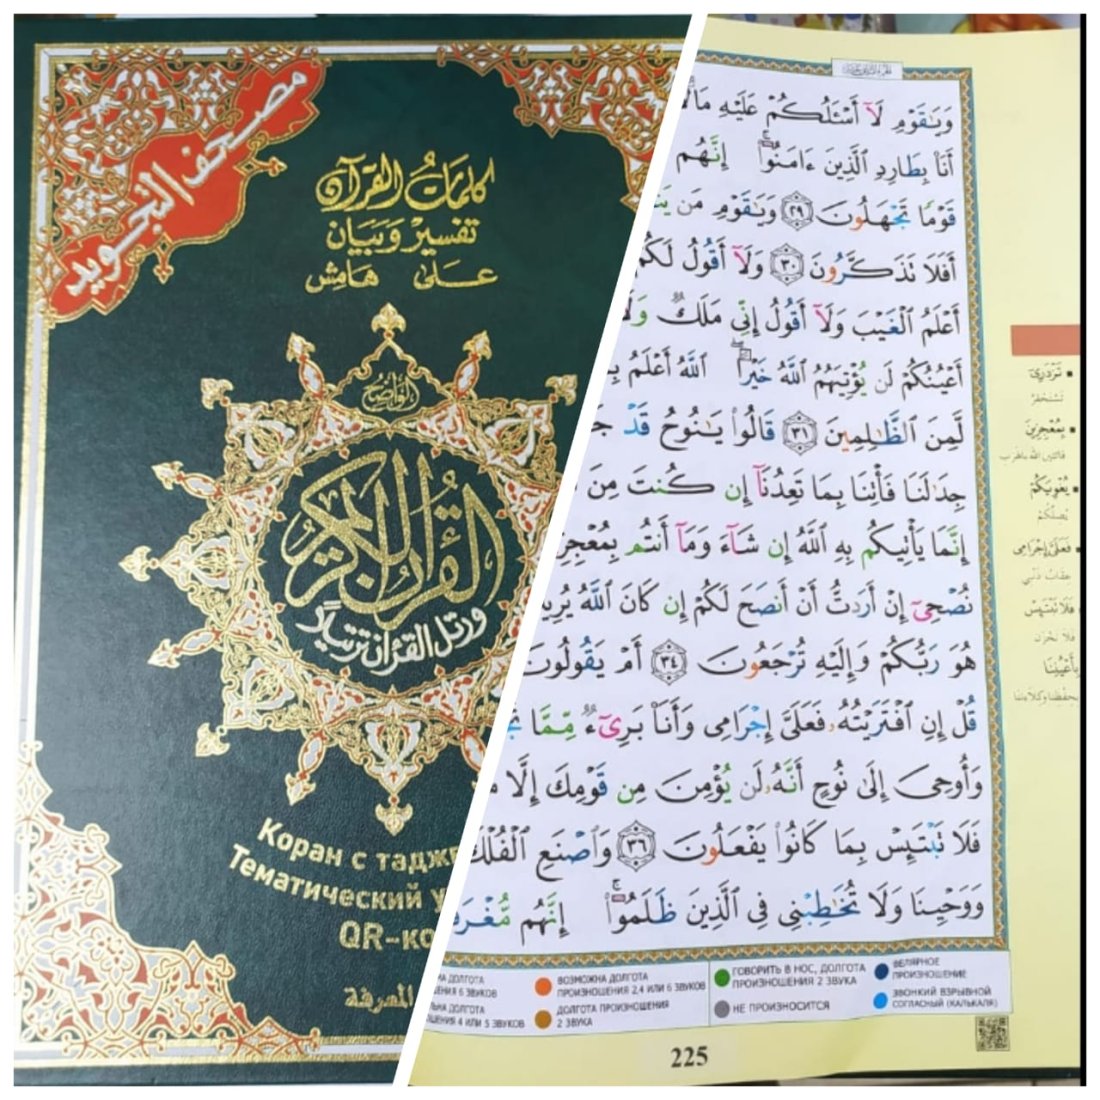 مصحف التجويد
كلمات القرآن
تفسير وبيان
على هامش
الواضح
القرآن الكريم
ورتل القرآن ترتيلا
Коран с
Тематический
QR-ко
المعرفة
وَيَٰقَوْمِ لَآ أَسْـَٔلُكُمْ عَلَيْهِ
أَنَا۠ بِطَارِدِ ٱلَّذِينَ ءَامَنُوٓا۟ إِنَّهُم
قَوْمًا تَجْهَلُونَ ٢٩ وَيَٰقَوْمِ مَن
أَفَلَا تَذَكَّرُونَ ٣٠ وَلَآ أَقُولُ لَكُمْ
أَعْلَمُ ٱلْغَيْبَ وَلَآ أَقُولُ إِنِّى مَلَكٌ
أَعْيُنُكُمْ لَن يُؤْتِيَهُمُ ٱللَّهُ خَيْرًا ٱللَّهُ أَعْلَمُ
لَّمِنَ ٱلظَّٰلِمِينَ ٣١ قَالُوا۟ يَٰنُوحُ قَدْ
جِدَٰلَنَا فَأْتِنَا بِمَا تَعِدُنَآ إِن كُنتَ مِنَ
إِنَّمَا يَأْتِيكُم بِهِ ٱللَّهُ إِن شَآءَ وَمَآ أَنتُم
نُصْحِىٓ إِنْ أَرَدتُّ أَنْ أَنصَحَ لَكُمْ إِن كَانَ ٱللَّهُ
هُوَ رَبُّكُمْ وَإِلَيْهِ تُرْجَعُونَ ٣٤ أَمْ يَقُولُونَ
قُلْ إِنِ ٱفْتَرَيْتُهُۥ فَعَلَىَّ إِجْرَامِى وَأَنَا۠ بَرِىٓءٌ مِّمَّا
وَأُوحِىَ إِلَىٰ نُوحٍ أَنَّهُۥ لَن يُؤْمِنَ مِن قَوْمِكَ إِلَّا
فَلَا تَبْتَئِسْ بِمَا كَانُوا۟ يَفْعَلُونَ ٣٦ وَٱصْنَعِ ٱلْفُلْكَ
وَوَحْيِنَا وَلَا تُخَٰطِبْنِى فِى ٱلَّذِينَ ظَلَمُوٓا۟ إِنَّهُم
تَزْدَرِىٓ
تستحقر
بِمُعْجِزِينَ
يُغْوِيَكُمْ
يُضلّكم
فَعَلَىَّ إِجْرَامِى
عقاب ذنبي
فَلَا تَبْتَئِسْ
فلا تحزن
بِأَعْيُنِنَا
ДОЛГОТА
6 ЗВУКОВ
ДОЛГОТА
4 ИЛИ 5 ЗВУКОВ
ВОЗМОЖНА ДОЛГОТА
ПРОИЗНОШЕНИЯ 2,4 ИЛИ 6 ЗВУКОВ
ДОЛГОТА ПРОИЗНОШЕНИЯ
2 ЗВУКА
ГОВОРИТЬ В НОС, ДОЛГОТА
ПРОИЗНОШЕНИЯ 2 ЗВУКА
НЕ ПРОИЗНОСИТСЯ
ВЕЛЯРНОЕ
ПРОИЗНОШЕНИЕ
ЗВОНКИЙ ВЗРЫВНОЙ
СОГЛАСНЫЙ (КАЛЬКАЛЯ)
225